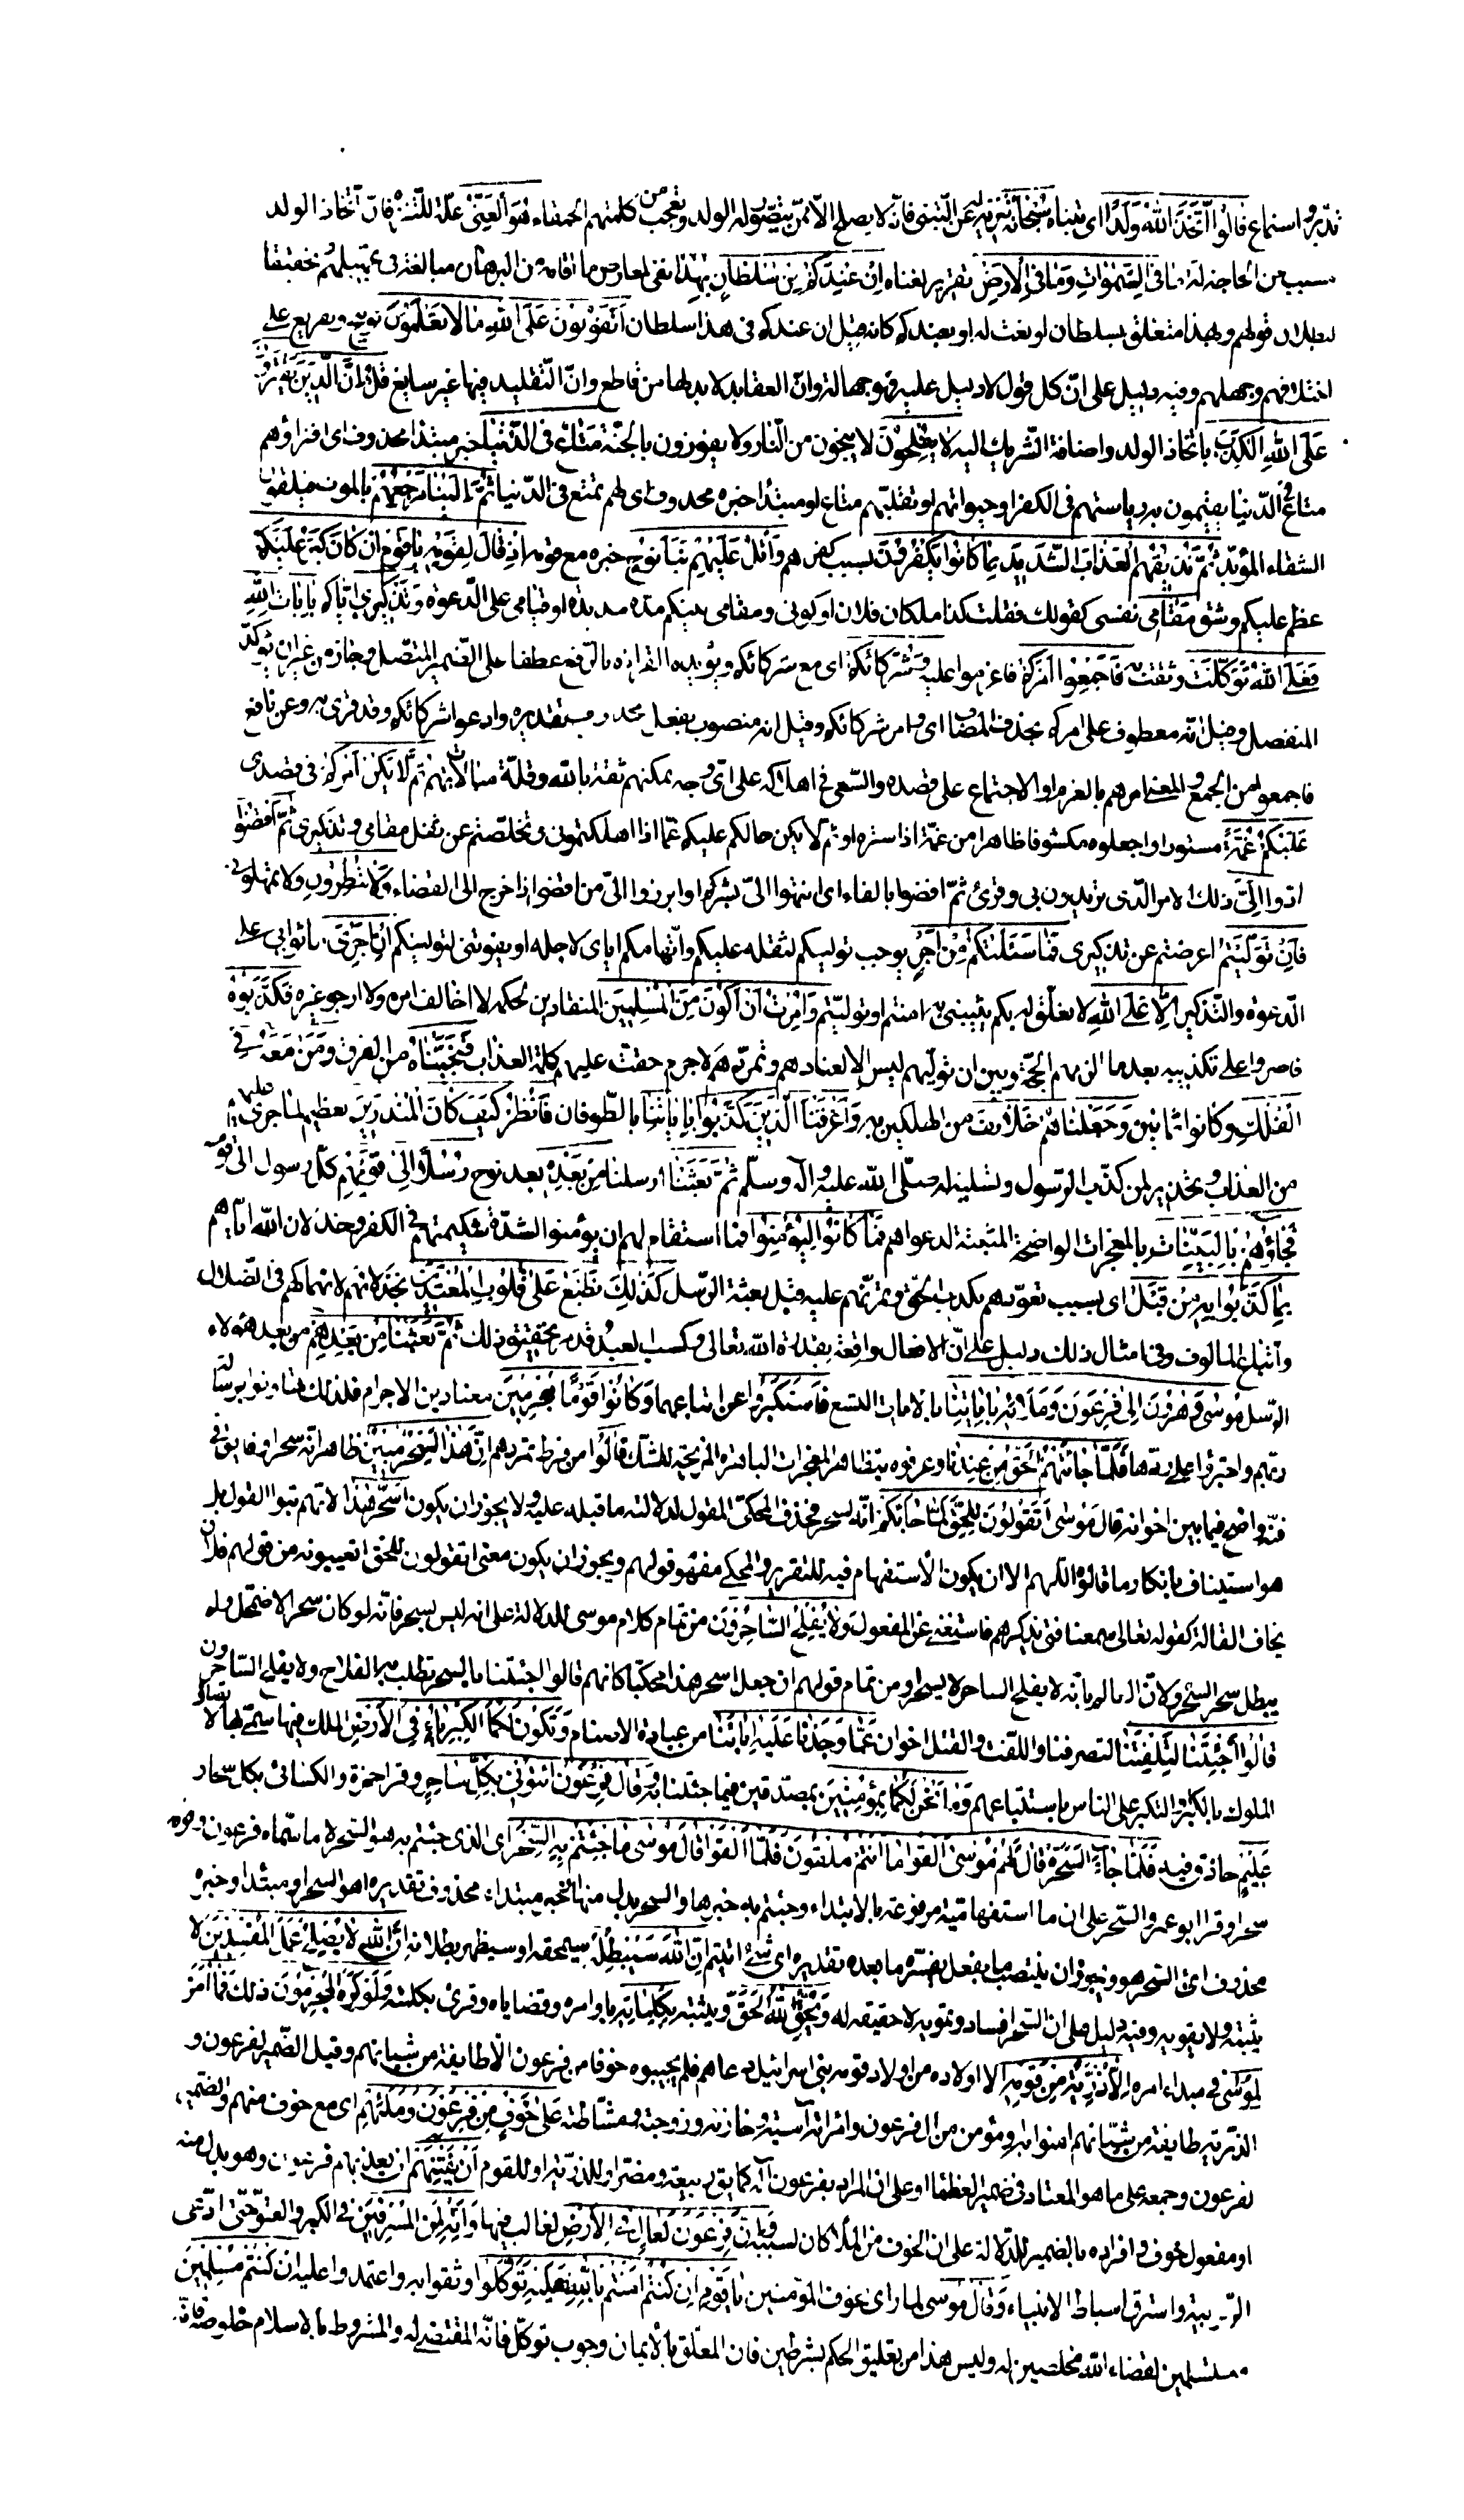 تدبر واستماع قالوا اتخذ الله ولدا اى تبناه سبحانه تنزيه له عن التبنى فانه لا يصلح الا ممن يتصور له الولد وتعجب من كلمتهم الحمقاء هو الغنى علة للتنزه فان اتخاذ الولد
مسبب من الحاجة له ما فى السموات وما فى الارض تقرير لغناه ان عندكم من سلطان بهذا نفى لمعارض ما اقامه من البرهان مبالغة فى تجهيلهم تحقيقا
لبطلان قولهم وبهذا متعلق بسلطان او نعت له او بعندكم كانه قيل ان عندكم فى هذا سلطان اتقولون على الله ما لا تعلمون توبيخ وتقريع على
اختلافهم وجهلهم وفيه دليل على ان كل قول لا دليل عليه فهو جهالة وان العقايد لا بد لها من قاطع وان التقليد فيها غير سايغ قل ان الذين يفترون
على الله الكذب باتخاذ الولد واضافة الشريك اليه لا يفلحون لا ينجون من النار ولا يفوزون بالجنة متاع فى الدنيا خبر مبتدا محذوف اى افتراؤهم
متاع فى الدنيا يقيمون به رياستهم فى الكفر او حيوتهم او تقلبهم متاع او مبتدا خبره محذوف اى لهم تمتع فى الدنيا ثم الينا مرجعهم بالموت فيلقون
الشقاء المؤبد ثم نذيقهم العذاب الشديد بما كانوا يكفرون بسبب كفرهم واتل عليهم نبا نوح خبره مع قومه اذ قال لقومه يا قوم ان كان كبر عليكم
عظم عليكم وشق مقامى نفسى كقولك فعلت كذا مكان فلان او كونى ومقامى بينكم مدة مديدة او قيامى على الدعوة وتذكيرى اياكم بايات الله
فعلى الله توكلت وثقت به فاجمعوا امركم فاعزموا عليه وشركائكم اى مع شركائكم ويؤيده القراءة بالرفع عطفا على الضمير المتصل وجاز من غير ان يؤكد
المنفصل وقيل انه معطوف على امركم بحذف المضاف اى وامر شركائكم وقيل انه منصوب بفعل محذوف تقديره وادعوا شركائكم وقد قرئ به وعن نافع
فاجمعوا من الجمع والمعنى امرهم بالعزم او الاجتماع على قصده والسعى فى اهلاكه على اى وجه يمكنهم ثقة بالله وقلة مبالاة بهم ثم لا يكن امركم فى قصدى
عليكم غمة مستورا واجعلوه مكشوفا ظاهرا من غمه اذا ستره او ثم لا يكن حالكم عليكم غما اذا اهلكتمونى وتخلصتم عن ثقل مقامى وتذكيرى ثم اقضوا
ادوا الى ذلك الامر الذى تريدون بى وقرئ ثم افضوا بالفاء اى انتهوا الى بشركم او ابرزوا الى من افضى اذا خرج الى الفضاء ولا تنظرون ولا تمهلونى
فان توليتم اعرضتم عن تذكيرى فما سئلتكم من اجر يوجب توليكم لثقله عليكم واتهامكم اياى لاجله او يفوتنى لتوليكم ان اجرى ما ثوابى على
الدعوة والتذكير الا على الله لا تعلق له بكم يثيبنى به امنتم او توليتم وامرت ان اكون من المسلمين المنقادين لحكمه لا اخالف امره ولا ارجو غيره فكذبوه
فاصروا على تكذيبه بعد ما الزمهم الحجة وبين ان توليهم ليس الا لعنادهم وتمردهم لا جرم حقت عليهم كلمة العذاب فنجيناه من الغرق ومن معه فى
الفلك وكانوا ثمانين وجعلناهم خلايف من المهلكين به واغرقنا الذين كذبوا باياتنا بالطوفان فانظر كيف كان عاقبة المنذرين تعظيم لما جرى عليهم
من العذاب وتحذير لمن كذب الرسول وتسلية له صلى الله عليه وآله وسلم ثم بعثنا ارسلنا من بعده بعد نوح رسلا الى قومهم كل رسول الى قومه
فجاؤهم بالبينات بالمعجزات الواضحة المثبتة لدعواهم فما كانوا ليؤمنوا فما استقام لهم ان يؤمنوا لشدة شكيمتهم فى الكفر وخذلان الله اياهم
بما كذبوا به من قبل اى بسبب تعودهم تكذيب الحق وتمرنهم عليه قبل بعثة الرسل كذلك نطبع على قلوب المعتدين بخذلانهم لانهماكهم فى الضلال
واتباع المالوف وفى امثال ذلك دليل على ان الافعال واقعة بقدرة الله تعالى وكسب العبد وقد مر تحقيق ذلك ثم بعثنا من بعدهم من بعد هؤلاء
الرسل موسى وهرون الى فرعون وملائه باياتنا بالايات التسع فاستكبروا عن اتباعهما وكانوا قوما مجرمين معتادين الاجرام فلذلك تهاونوا برسالة
ربهم واجترؤا على ردها فلما جائهم الحق من عندنا وعرفوه بتظاهر المعجزات الباهرة المزيحة للشك قالوا من فرط تمردهم ان هذا لسحر مبين ظاهر انه سحر او فايق فى
فنه واضح فيما بين اخوانه قال موسى اتقولون للحق لما جائكم انه لسحر فحذف المحكى المقول لدلالة ما قبله عليه ولا يجوز ان يكون اسحر هذا لانهم بتوا القول بل
هو استيناف بانكار ما قالوه اللهم الا ان يكون الاستفهام فيه للتقرير والمحكى مفهوم قولهم ويجوز ان يكون معنى اتقولون للحق اتعيبونه من قولهم فلان
يخاف القالة كقوله تعالى سمعنا فتى يذكرهم فاستغنى عن المفعول ولا يفلح الساحرون من تمام كلام موسى للدلالة على انه ليس بسحر فانه لو كان سحرا لاضمحل ولم
يبطل سحر السحرة ولان العالم بانه لا يفلح الساحر لا يسحر او من تمام قولهم ان جعل اسحر هذا محكيا كانهم قالوا اجئتنا بالسحر تطلب به الفلاح ولا يفلح الساحرون
قالوا اجئتنا لتلفتنا لتصرفنا واللفت والفتل اخوان عما وجدنا عليه اباءنا من عبادة الاصنام وتكون لكما الكبرياء فى الارض الملك فيها سمى بها لاتصاف
الملوك بالكبر والتكبر على الناس باستتباعهم وما نحن لكما بمؤمنين بمصدقين فيما جئتما به وقال فرعون ائتونى بكل ساحر وقرا حمزة والكسائى بكل سحار
عليم حاذق فيه فلما جاء السحرة قال لهم موسى القوا ما انتم ملقون فلما القوا قال موسى ما جئتم به السحر اى الذى جئتم به هو السحر لا ما سماه فرعون وقومه
سحرا وقرا ابو عمرو السحر على ان ما استفهامية مرفوعة بالابتداء وجئتم به خبرها والسحر بدل منها او خبر مبتداء محذوف تقديره اهو السحر او مبتدا وخبره
محذوف اى السحر هو ويجوز ان ينتصب ما بفعل يفسره ما بعده تقديره اى شئ اتيتم ان الله سيبطله سيمحقه او سيظهر بطلانه ان الله لا يصلح عمل المفسدين لا
يثبته ولا يقويه وفيه دليل على ان السحر افساد وتمويه لا حقيقة له ويحق الله الحق ويثبته بكلماته باوامره وقضاياه وقرئ بكلمته ولو كره المجرمون ذلك فما امن
لموسى فى مبداء امره الا ذرية من قومه الا اولاده من اولاد قومه بنى اسرائيل دعاهم فلم يجيبوه خوفا من فرعون الا طايفة من شبانهم وقيل الضمير لفرعون و
الذرية طايفة من شبانهم امنوا به او مؤمن من ال فرعون وامراته آسية وخازنه وزوجته وماشطته على خوف من فرعون وملئهم اى مع خوف منهم والضمير
لفرعون وجمعه على ما هو المعتاد فى ضمير العظما او على ان المراد بفرعون اله كما يقال ربيعة ومضر او للذرية او للقوم ان يفتنهم ان يعذبهم فرعون وهو بدل منه
او مفعول خوف وافراده بالضمير للدلالة على ان الخوف من الملا كان لسببه وان فرعون لعال فى الارض لغالب فيها وانه لمن المسرفين فى الكبر والعتو حتى ادعى
الربوبية واسترق اسباط الانبياء وقال موسى لما راى خوف المؤمنين يا قوم ان كنتم امنتم بالله فعليه توكلوا وثقوا به واعتمدوا عليه ان كنتم مسلمين
مستسلمين لقضاء الله مخلصين له وليس هذا من تعليق الحكم بشرطين فان المعلق بالايمان وجوب توكل فانه المقتضى له والمشروط بالاسلام حصوله فانه